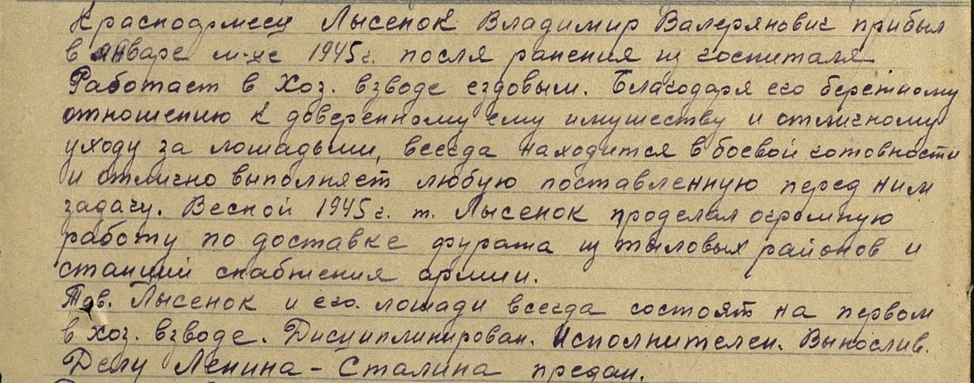 Красноармеец Лысенок Владимир Валерянович прибыл
в январе м-це 1945г. после ранения из госпиталя
Работает в Хоз. взводе ездовым. Благодаря его бережному
отношению к доверенному ему имуществу и отличному
уходу за лошадьми, всегда находится в боевой готовности
и отлично выполняет любую поставленную перед ним
задачу. Весной 1945г. т. Лысенок проделал огромную
работу по доставке фуража из тыловых районов и
станций снабжения армии.
Тов. Лысенок и его лошади всегда состоят на первом
в хоз. взводе. Дисциплинирован. Исполнителен. Вынослив.
Делу Ленина - Сталина предан.